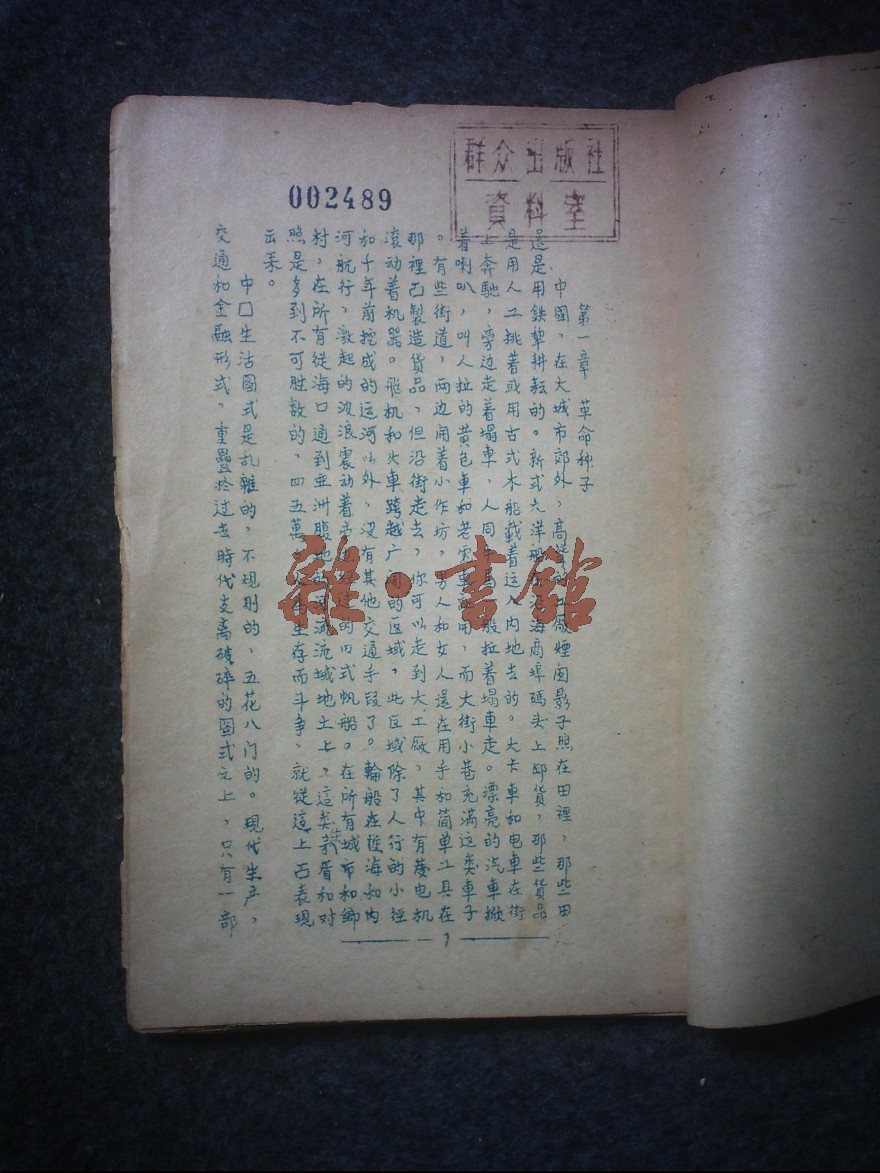 群众出版社
資料室
002489
第一章 革命种子
中國，在大城市郊外，高廠煙囱影子照在田裡，那些田
還是用鉄犂耕耘的。新式大洋船在沿海商埠碼头上卸貨，那些貨品
是用人工挑着或用古式木船載着运入内地去的。大卡車和电車在街
上奔馳，旁边走着塌車，人同馬般拉着塌車走。漂亮的汽車掀
着喇叭，叫人拉的黄包車和老虎車用，而大街小巷充满这类車子
。有些街道，两边開着小作坊，男人和女人還在用手和简单工具在
那裡凸製造貨品，但沿街走去，你可以走到大工厰，其中有菱电机
滚动着机器。飛机和火車跨越广阔的区域，此区域除了人行的小徑
和千年前挖成的运河以外，没有其他交通手段了。輪船在沿海和内
河航行，激起的波浪震动着的旧式帆船。在所有城市和鄉
村，在所有從海口通到亚洲腹地的河流流域地土上，這类矛盾和对
照是多到不可胜数的，四五萬生存而斗争，就從這上凸表现
出来。
中囗生活圖式是乱雜的，不规則的，五花八门的。现代生产，
交通和金融形式，重疊於过去時代支离破碎的圖式之上，只有一部
1
雜·書館